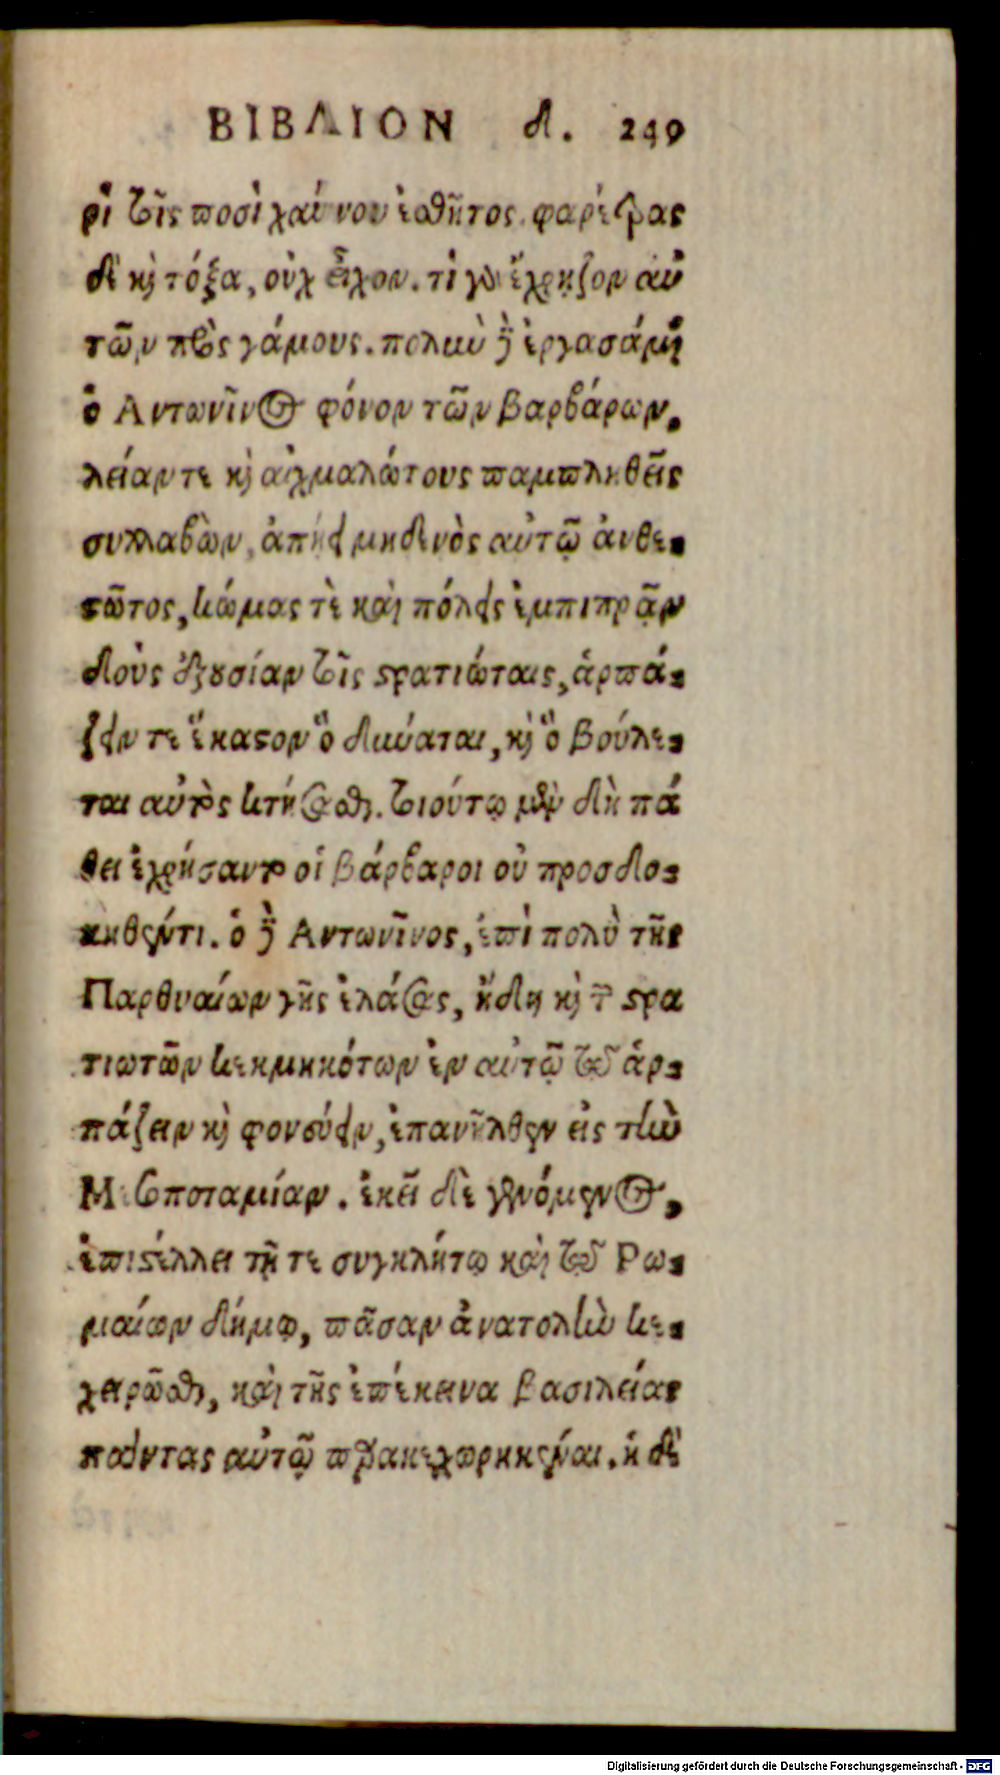 ΒΙΒΛΙΟΝ δ. 249
ρὶ τοῖς ποσὶ χαύνου ἐσθῆτος. φαρέτρας
δὲ καὶ τόξα, οὐχ εἶχον. τί γὰρ ἔχρῃζον αὐ
τῶν πρὸς γάμους. πολὺν δὲ ἐργασάμενος
ὁ Αντωνῖνος φόνον τῶν βαρβάρων,
λείαν τε καὶ αἰχμαλώτους παμπληθεῖς
συλλαβὼν, ἀπῄει μηδενὸς αὐτῷ ἀνθε-
στῶτος, κώμας τὲ καὶ πόλεις ἐμπιπρᾷν
δοὺς ἐξουσίαν τοῖς στρατιώταις, ἁρπά-
ζειν τε ἕκαστον ὃ δύναται, καὶ ὃ βούλε-
ται αὐτὸς κτήσασθαι. τοιούτῳ μὲν δὴ πά
θει ἐχρήσαντο οἱ βάρβαροι οὐ προσδο-
κηθέντι. ὁ δὲ Αντωνῖνος, ἐπὶ πολὺ τῆς
Παρθυαίων γῆς ἐλάσας, ἤδη καὶ τῶν στρα
τιωτῶν κεκμηκότων ἐν αὐτῷ τῷ ἁρ-
πάζειν καὶ φονεύειν, ἐπανῆλθεν εἰς τὴν
Μεσοποταμίαν. ἐκεῖ δὲ γενόμενος,
ἐπιστέλλει τῇ τε συγκλήτῳ καὶ τῷ Ρω-
μαίων δήμῳ, πᾶσαν ἀνατολὴν κε-
χειρῶσθαι, καὶ τῆς ἐπέκεινα βασιλείας
πάντας αὐτῷ παρακεχωρηκέναι. ἡ δὲ
Digitalisierung gefördert durch die Deutsche Forschungsgemeinschaft - DFG